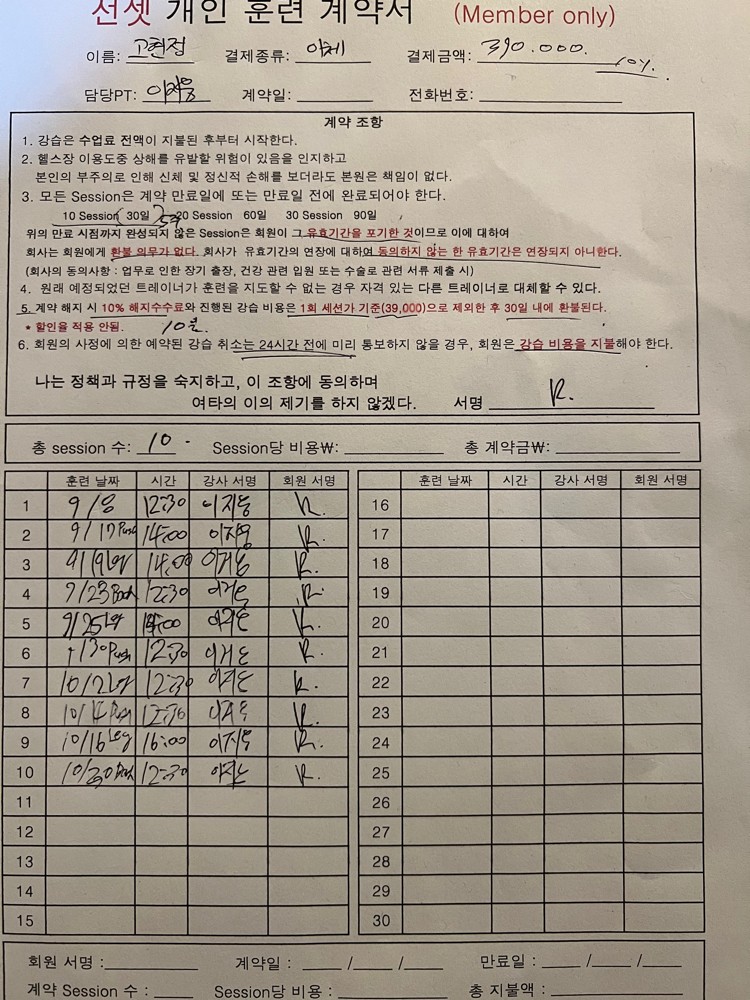 선셋 개인 훈련 계약서 (Member only)
이름: 고현정 결제종류: 이체 결제금액: 390.000.
담당PT: 계약일: 전화번호:
계약 조항
1. 강습은 수업료 전액이 지불된 후부터 시작한다.
2. 헬스장 이용도중 상해를 유발할 위험이 있음을 인지하고
본인의 부주의로 인해 신체 및 정신적 손해를 보더라도 본원은 책임이 없다.
3. 모든 Session은 계약 만료일에 또는 만료일 전에 완료되어야 한다.
10 Session 30일 20 Session 60일 30 Session 90일
위의 만료 시점까지 완성되지 않은 Session은 회원이 그 유효기간을 포기한 것이므로 이에 대하여
회사는 회원에게 환불 의무가 없다. 회사가 유효기간의 연장에 대하여 동의하지 않는 한 유효기간은 연장되지 아니한다.
(회사의 동의사항 : 업무로 인한 장기 출장, 건강 관련 입원 또는 수술로 관련 서류 제출 시)
4. 원래 예정되었던 트레이너가 훈련을 지도할 수 없는 경우 자격 있는 다른 트레이너로 대체할 수 있다.
5. 계약 해지 시 10% 해지수수료와 진행된 강습 비용은 1회 세션가 기준(39,000)으로 제외한 후 30일 내에 환불된다.
* 할인율 적용 안됨.
6. 회원의 사정에 의한 예약된 강습 취소는 24시간 전에 미리 통보하지 않을 경우, 회원은 강습 비용을 지불해야 한다.
나는 정책과 규정을 숙지하고, 이 조항에 동의하며
여타의 이의 제기를 하지 않겠다. 서명 R.
총 session 수: 10 Session당 비용₩: 총 계약금₩:
훈련 날짜 시간 강사 서명 회원 서명 훈련 날짜 시간 강사 서명 회원 서명
1 9/8 12:30 R. 16
2 9/17 Push 14:00 R. 17
3 9/19 Leg 14:00 R. 18
4 9/23 Back 12:30 R. 19
5 9/25 Leg R. 20
6 Push 12:30 R. 21
7 10/2 Leg 12:30 R. 22
8 10/14 Push 12:30 R. 23
9 10/16 Leg 16:00 R. 24
10 10/30 12:30 R. 25
11 26
12 27
13 28
14 29
15 30
회원 서명 : 계약일 : / / 만료일 : / /
계약 Session 수 : Session당 비용 : 총 지불액 :